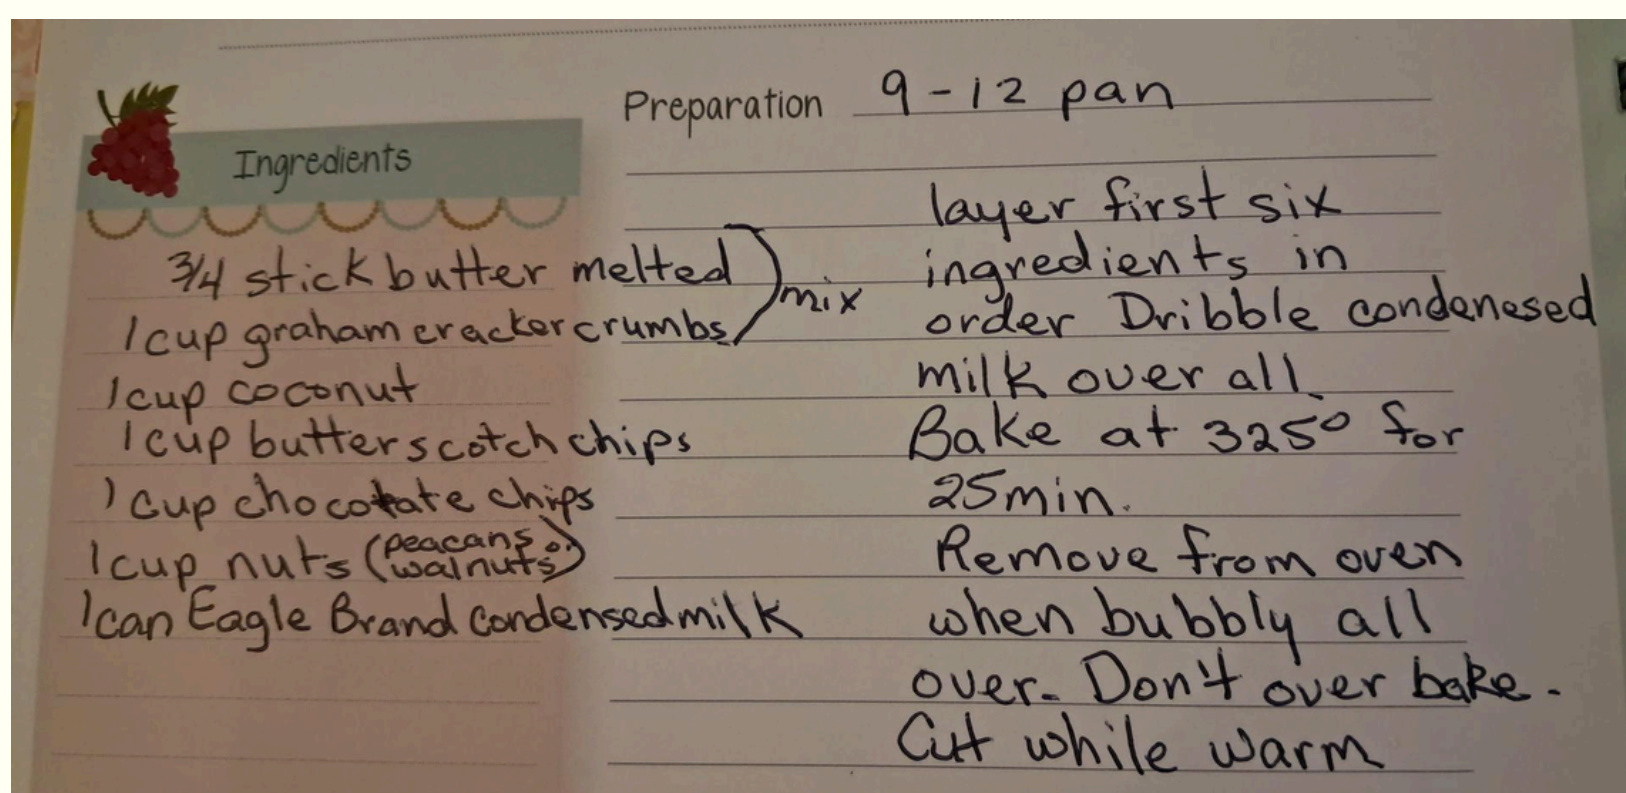 Ingredients
3/4 stick butter melted
1 cup graham cracker crumbs
mix
1 cup coconut
1 cup butterscotch chips
1 cup chocotate chips
1 cup nuts (peacans or
walnuts)
1 can Eagle Brand condensed milk
Preparation 9-12 pan
layer first six
ingredients in
order Dribble condenesed
milk over all
Bake at 325° for
25 min.
Remove from oven
when bubbly all
over. Don't over bake.
Cut while warm